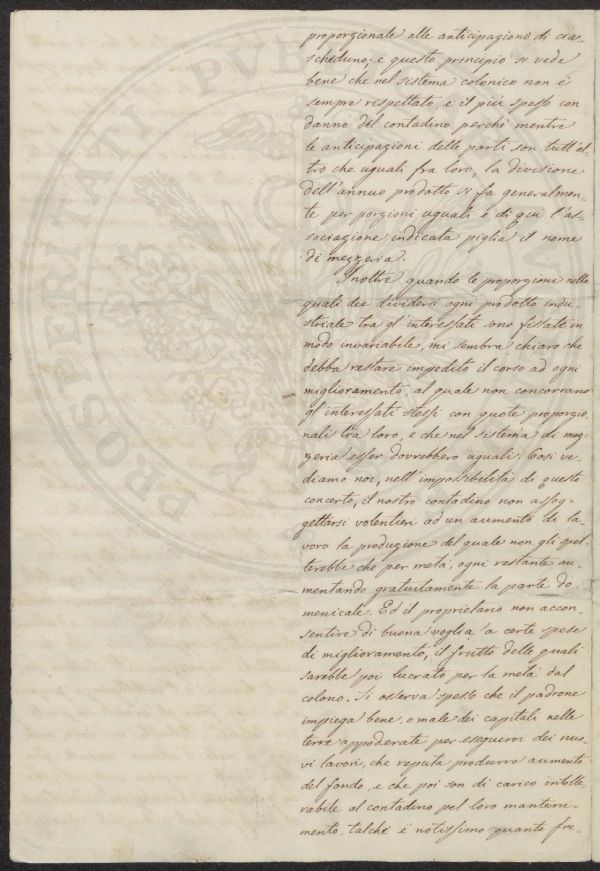 proporzionale alle anticipazioni di cia-
scheduno; e questo principio si vede
bene che nel sistema colonico non è
sempre rispettato, e il più spesso con
danno del contadino perchè mentre
le anticipazioni delle parti son tutt'al-
tro che uguali fra loro, la divisione
dell'annuo prodotto si fa generalmen-
te per porzioni uguali e di qui l'as-
sociazione indicata piglia il nome
di mezzeria.
Inoltre quando le proporzioni nelle
quali dee dividersi ogni prodotto indu-
striale tra gl'interessati sono fissate in
modo invariabile, mi sembra chiaro che
debba restare impedito il corso ad ogni
miglioramento, al quale non concorrano
gl'interessati stessi con quote proporzio
nali tra loro, e che nel sistema di mez-
zeria esser dovrebbero uguali. Così ve-
diamo noi, nell'impossibilità di questo
concerto, il nostro contadino non assog-
gettarsi volentieri ad un aumento di la-
voro la produzione del quale non gli spet-
terebbe che per metà, ogni restante au-
mentando gratuitamente la parte do-
menicale. Ed il proprietario non accon-
sentire di buona voglia a certe spese
di miglioramento, il frutto delle quali
sarebbe poi lucrato per la metà dal
colono. Si osserva spesso che il padrone
impiega bene, o male dei capitali nelle
terre appoderate per eseguirvi dei nuo-
vi lavori, che reputa produrre aumento
del fondo, e che poi son di carico intolle
rabile al contadino pel loro manteni-
mento, talchè è notissimo quanto fre-
PROSPERITATI PVB